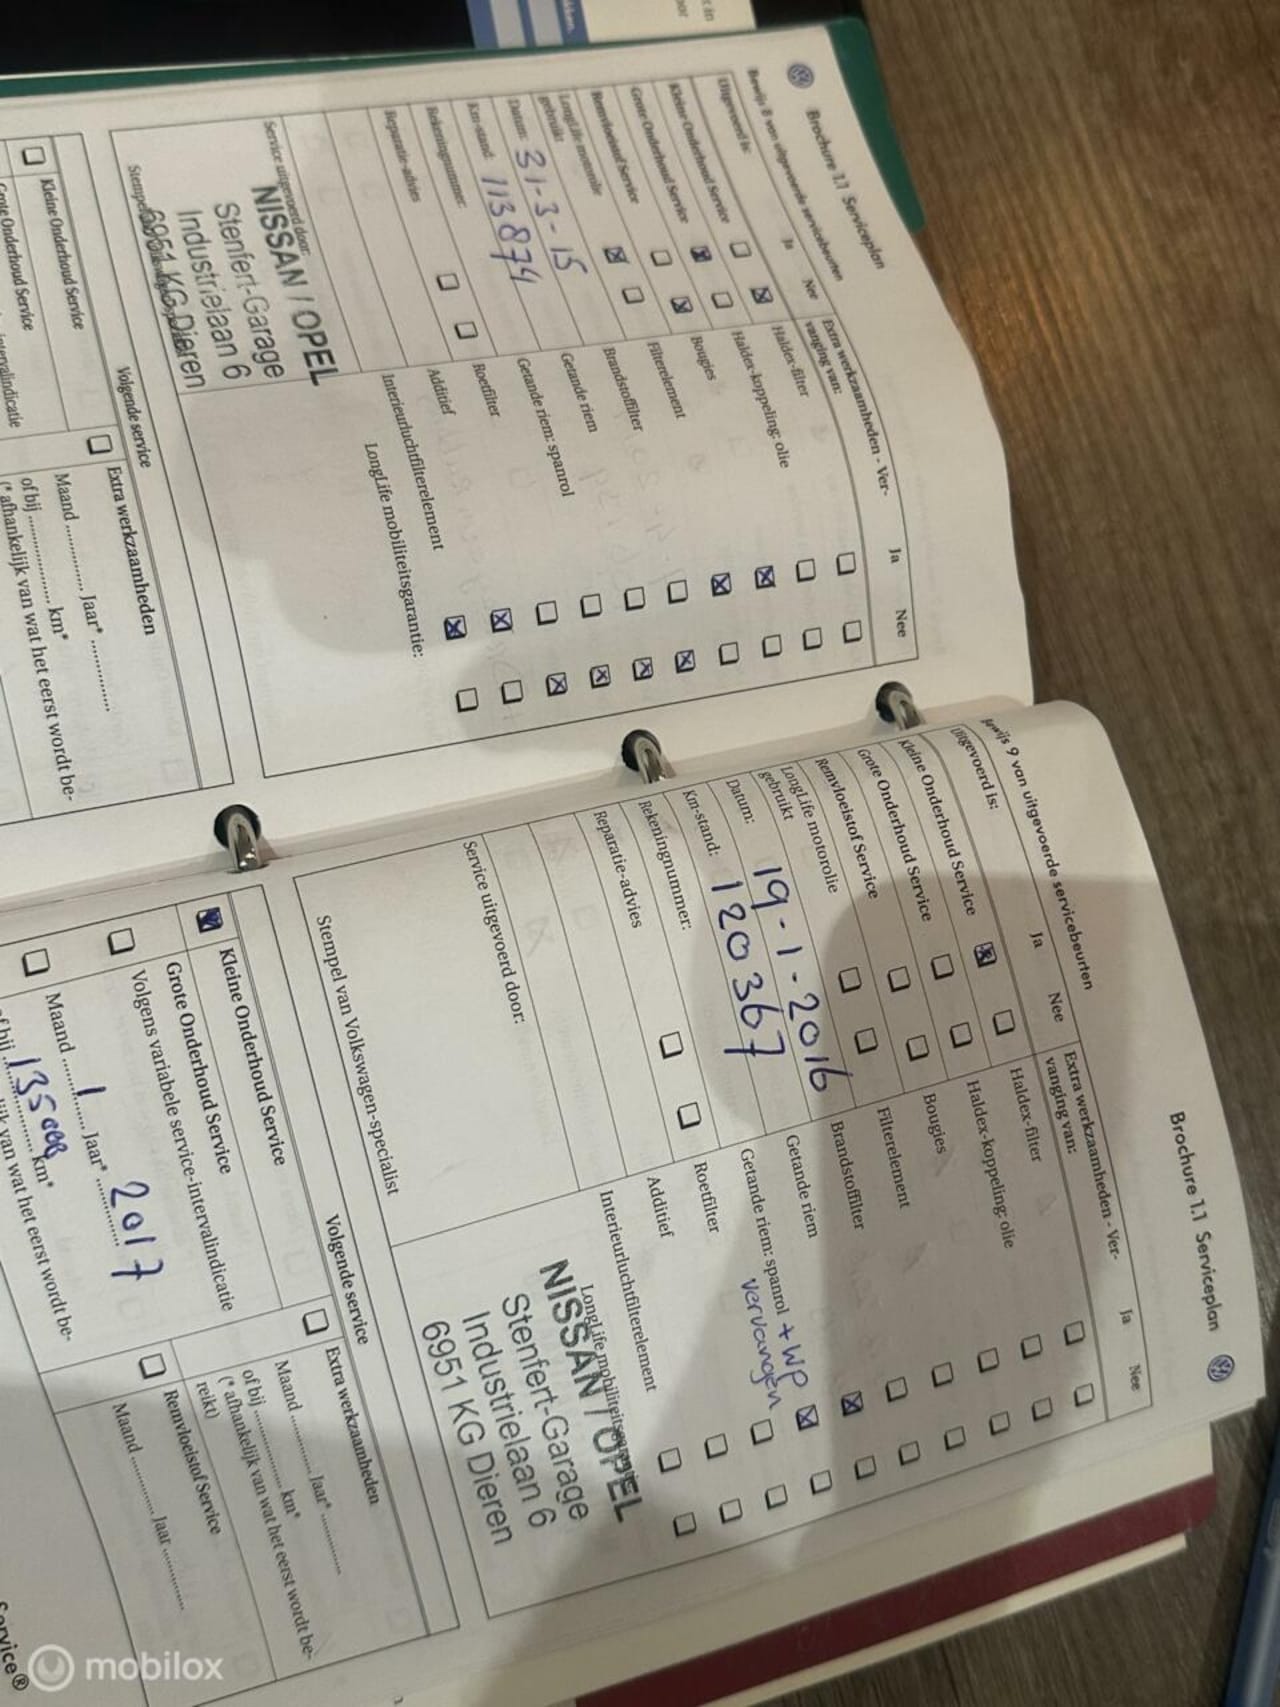 Brochure 1.1 Serviceplan
Bewijs 8 van uitgevoerde servicebeurten
Uitgevoerd is:
Ja
Nee
Kleine Onderhoud Service
Grote Onderhoud Service
Remvloeistof Service
LongLife motorolie
gebruikt
Datum: 31-3-15
Km-stand: 113874
Rekeningnummer:
Reparatie-advies
Service uitgevoerd door:
NISSAN / OPEL
Stenfert-Garage
Industrielaan 6
6951 KG Dieren
Extra werkzaamheden - Ver-
vanging van:
Ja
Nee
Haldex-filter
Haldex-koppeling: olie
Bougies
Filterelement
Brandstoffilter
Getande riem
Getande riem: spanrol
Roetfilter
Additief
Interieurluchtfilterelement
LongLife mobiliteitsgarantie:
Volgende service
Kleine Onderhoud Service
Grote Onderhoud Service
Extra werkzaamheden
Maand ............ Jaar* ............
of bij ............ km*
(* afhankelijk van wat het eerst wordt be-
Brochure 1.1 Serviceplan
Bewijs 9 van uitgevoerde servicebeurten
Uitgevoerd is:
Ja
Nee
Kleine Onderhoud Service
Grote Onderhoud Service
Remvloeistof Service
LongLife motorolie
gebruikt
Datum: 19-1-2016
Km-stand: 120367
Rekeningnummer:
Reparatie-advies
Service uitgevoerd door:
Stempel van Volkswagen-specialist
Extra werkzaamheden - Ver-
vanging van:
Ja
Nee
Haldex-filter
Haldex-koppeling: olie
Bougies
Filterelement
Brandstoffilter
Getande riem
Getande riem: spanrol + WP
vervangen
Roetfilter
Additief
Interieurluchtfilterelement
NISSAN / OPEL
Stenfert-Garage
Industrielaan 6
6951 KG Dieren
Volgende service
Kleine Onderhoud Service
Grote Onderhoud Service
Volgens variabele service-intervalindicatie
Maand ....1.... Jaar* 2017
135000 km*
Extra werkzaamheden
Maand ............ Jaar* ............
of bij ............ km*
(* afhankelijk van wat het eerst wordt be-
reikt)
Remvloeistof Service
Maand ............ Jaar ............
mobilox